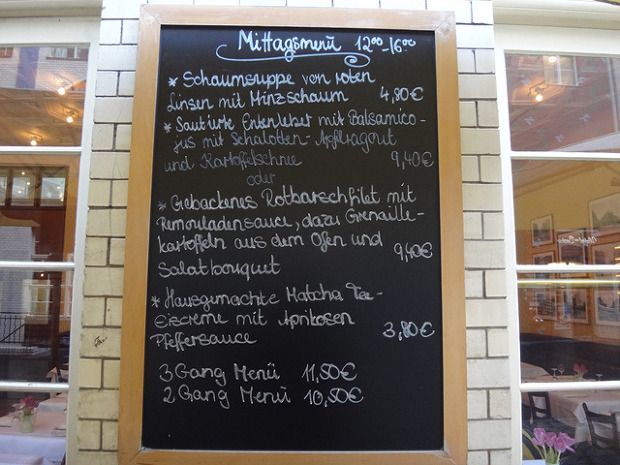 Mittagsmenü 12⁰⁰-16⁰⁰
* Schaumsuppe von roten
Linsen mit Minzschaum 4,80€
* Sautierte Entenleber mit Balsamico-
jus mit Schalotten-Apflragout
und Kartoffelschnee 9,40€
oder
* Gebackenes Rotbarschfilet mit
Remouladensauce, dazu Grenaille-
kartoffeln aus dem Ofen und
Salatbouquet 9,40€
* Hausgemachte Matcha Tee-
Eiscreme mit Aprikosen
Pfeffersauce 3,80€
3 Gang Menü 11,50€
2 Gang Menü 10,50€